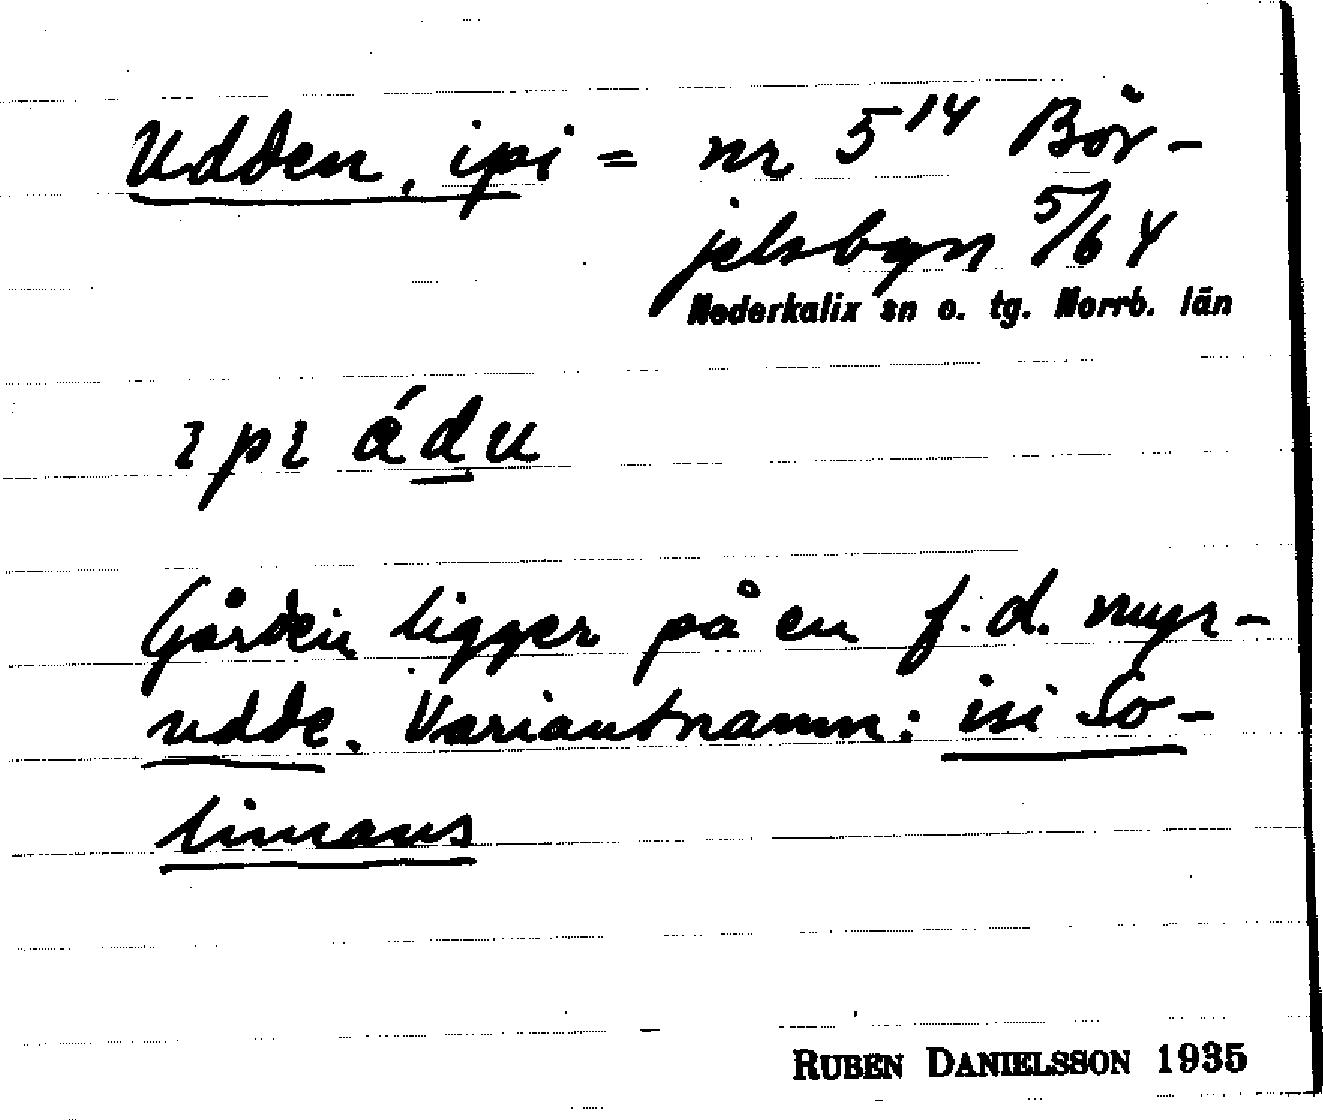 Udden, ipi = nr 5¹⁴ Bör-
jelsbyn 5/64
Nederkalix sn o. tg. Norrb. län
ɩpɩ ádu
Gården ligger på en f.d. myr-
udde. Variantnamn: isi So-
limans
RUBEN DANIELSSON 1935